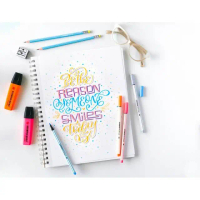 Be the
REASON
SOMEONE
SMILES
today